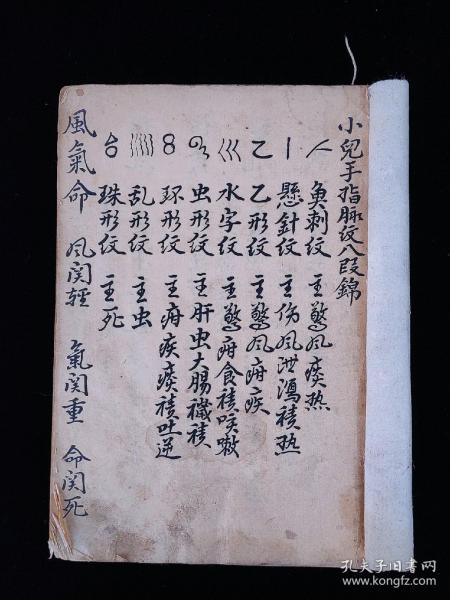 小兒手指脉纹八段錦
魚刺纹 主驚风痰热
懸針纹 主伤风泄瀉積热
乙形纹 主驚风疳疾
水字纹 主驚疳食積咳嗽
虫形纹 主肝虫大腸穢積
环形纹 主疳疾痰積吐逆
乱形纹 主虫
珠形纹 主死
風氣命 风関輕 氣関重 命関死
孔夫子旧书网
www.kongfz.com